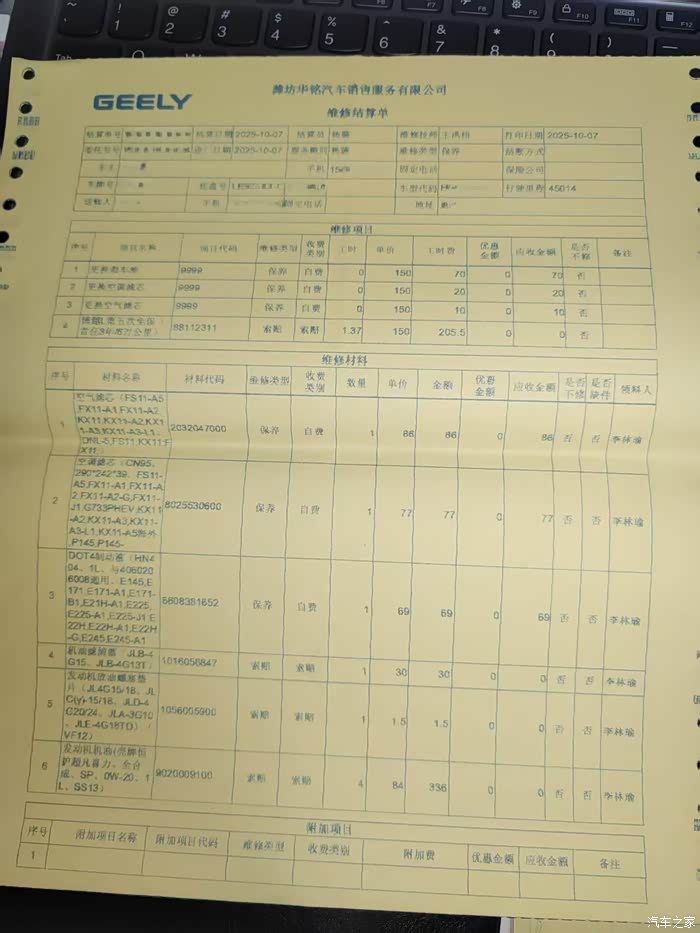 GEELY
潍坊华铭汽车销售服务有限公司
维修结算单
结算单号 结算日期 2025-10-07 结算员 维修技师 打印日期 2025-10-07
2025-10-07 服务顾问 维修类型 保养 结账方式
车主 手机 固定电话 保险公司
车牌号 底盘号 车型代码 行驶里程 45014
送修人 手机 固定电话 地址
维修项目
序号 项目名称 项目代码 维修类别 收费类别 工时 单价 工时费 优惠金额 应收金额 是否不修 备注
1 9999 保养 自费 0 150 70 0 70 否
2 更换空调滤芯 9999 保养 自费 0 150 20 0 20 否
3 更换空气滤芯 9999 保养 自费 0 150 10 0 10 否
4 88112311 索赔 索赔 1.37 150 205.5 0 0 否
维修材料
序号 材料名称 材料代码 维修类别 收费类别 数量 单价 金额 优惠金额 应收金额 是否不修 是否缺件 领料人
空气滤芯（FS11-A5
,FX11-A1,FX11-A2,
KX11,KX11-A2,KX1
1-A3,KX11-A3-L1,
1 2032047000 保养 自费 1 86 86 0 86 否 否 李林瑜
空调滤芯（CN95,
290*242*39、FS11-
A5,FX11-A1,FX11-A
2,FX11-A2-G,FX11-
J1,G733PHEV,KX11
-A2,KX11-A3,KX11-
A3-L1,KX11-A5海外
,P145,P145-
2 8025530600 保养 自费 1 77 77 0 77 否 否 李林瑜
DOT4制动液（HN4
04、1L、与406020
6008通用、E145,E
171,E171-A1,E171-
B1,E21H-A1,E225,
E225-A1,E225-J1,E
22H,E22H-A1,E22H
-G,E245,E245-A1
3 6608381652 保养 自费 1 69 69 0 69 否 否 李林瑜
4 机油滤清器（JLB-4
G15、JLB-4G13T） 1016056847 索赔 索赔 1 30 30 0 0 否 否 李林瑜
发动机放油螺塞垫
片（JL4G15/18、JL
C(γ)-15/18、JLD-4
G20/24、JLA-3G10
、JLE-4G18TD）（
VF12）
5 1056005900 索赔 索赔 1 1.5 1.5 0 0 否 否 李林瑜
护超凡喜力、全合
成、SP、0W-20、1
L、SS13）
6 9020009100 索赔 索赔 4 84 336 0 0 否 否 李林瑜
附加项目
序号 附加项目名称 附加项目代码 维修类型 收费类别 附加费 优惠金额 应收金额 备注
1
汽车之家